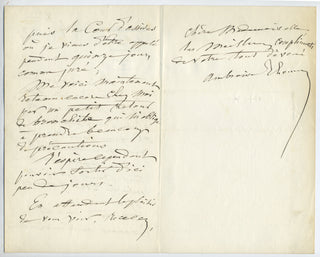 puis la Cour d'assises
où je viens d'être appelé
pendant quinze jours
comme juré,
Me voici maintenant
retenu encore chez moi
par un petit retour
de bronchite qui m'oblige
à prendre beaucoup
de précautions
J'espère cependant
pouvoir sortir d'ici
peu de jours.
En attendant le plaisir
de vous voir, recevez,
chère Mademoiselle
les meilleurs compliments
de votre tout dévoué
Ambroise Thomas